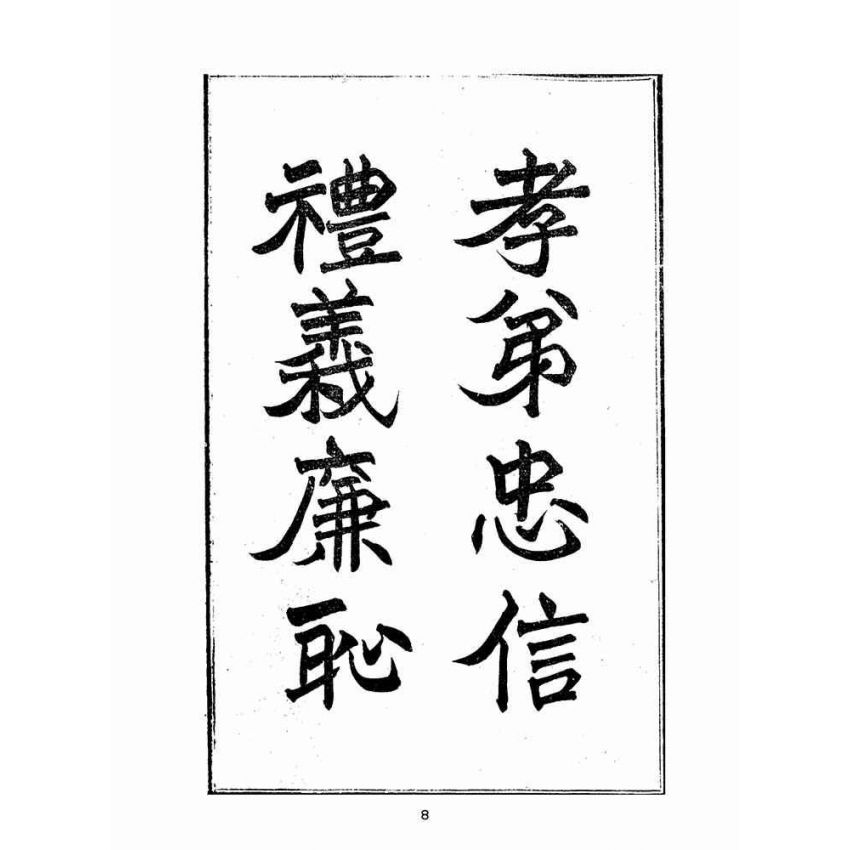 孝弟忠信
禮義廉恥
8